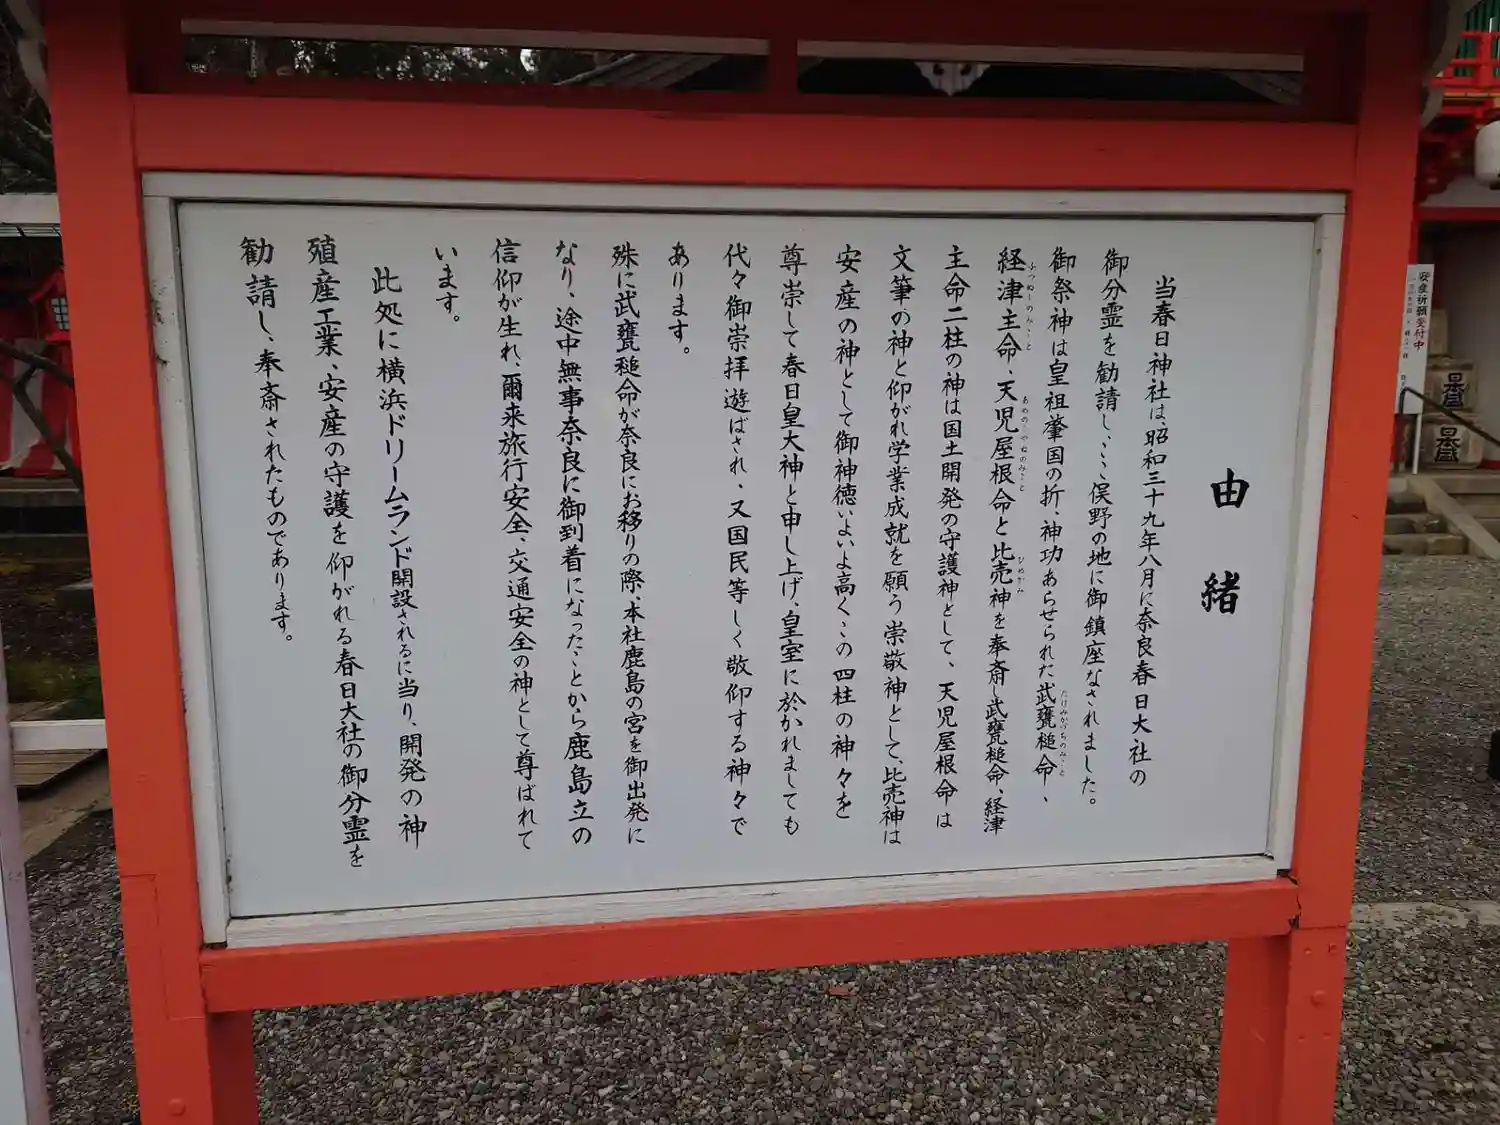 由緒
当春日神社は、昭和三十九年八月に奈良春日大社の
御分霊を勧請し、ここ俣野の地に御鎮座なされました。
御祭神は皇祖肇国の折、神功あらせられた武甕槌命、
経津主命、天児屋根命と比売神を奉斎し武甕槌命、経津
主命二柱の神は国土開発の守護神として、天児屋根命は
文筆の神と仰がれ学業成就を願う崇敬神として、比売神は
安産の神として御神徳いよいよ高く、この四柱の神々を
尊崇して春日皇大神と申し上げ、皇室に於かれましても
代々御崇拝遊ばされ、又国民等しく敬仰する神々で
あります。
殊に武甕槌命が奈良にお移りの際、本社鹿島の宮を御出発に
なり、途中無事奈良に御到着になったことから鹿島立の
信仰が生れ、爾来旅行安全、交通安全の神として尊ばれて
います。
此処に横浜ドリームランド開設されるに当り、開発の神、
殖産工業、安産の守護を仰がれる春日大社の御分霊を
勧請し、奉斎されたものであります。
たけみかづちのみこと
ふつぬしのみこと
あめのこやねのみこと
ひめがみ
安産祈願受付中
日本盛
日本盛